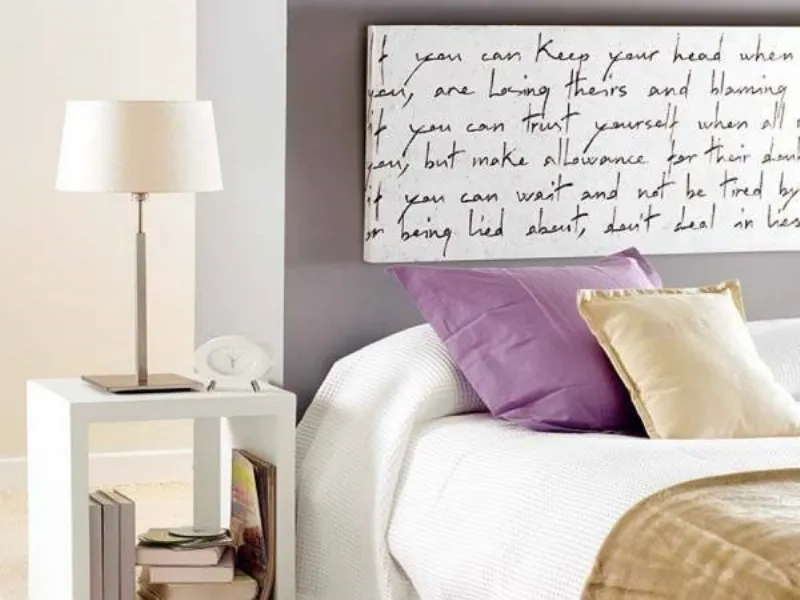 if you can keep your head when
you, are losing theirs and blaming
if you can trust yourself when all
you, but make allowance for their doub
if you can wait and not be tired by
or being lied about, don't deal in lies